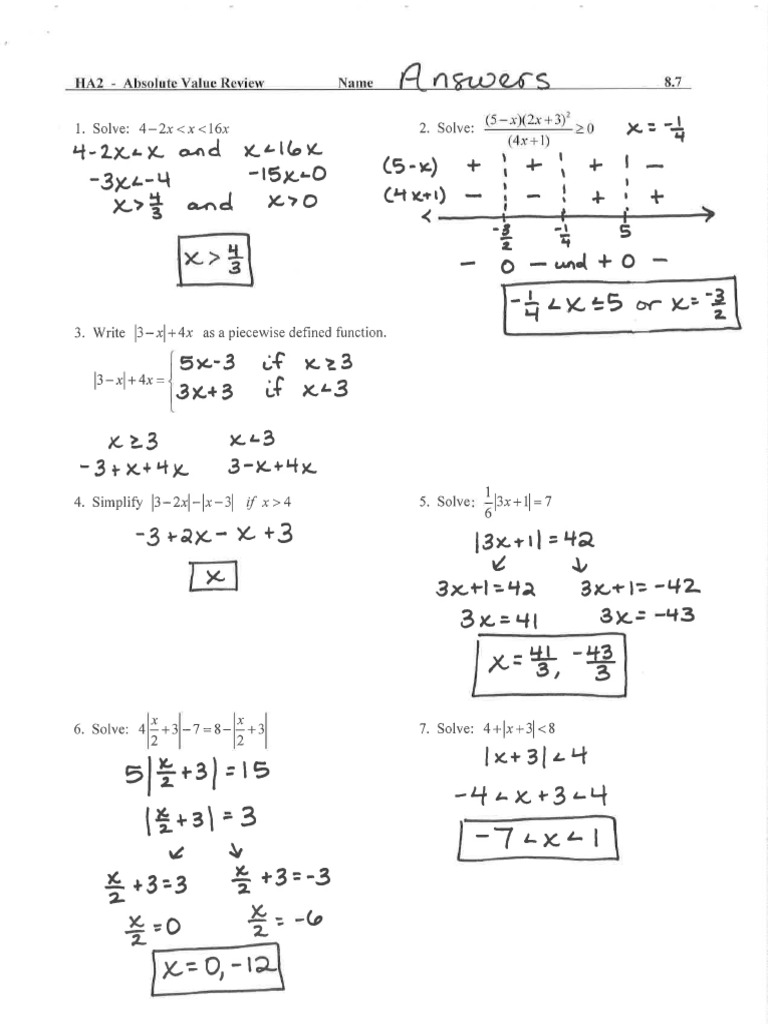 HA2 - Absolute Value Review Name Answers 8.7
1. Solve: 4−2x<x<16x
4-2x<x and x<16x
-3x<-4 -15x<0
x>4/3 and x>0
x>4/3
2. Solve: (5−x)(2x+3)²/(4x+1) ≥0 x=-1/4
(5-x) + + + | -
(4x+1) - - + +
-3/2 -1/4 5
- 0 - und + 0 -
-1/4<x≤5 or x=-3/2
3. Write |3−x|+4x as a piecewise defined function.
|3−x|+4x={
5x-3 if x≥3
3x+3 if x<3
x≥3 x<3
-3+x+4x 3-x+4x
4. Simplify |3−2x|−|x−3| if x>4
-3+2x-x+3
x
5. Solve: 1/6|3x+1|=7
|3x+1|=42
↙ ↘
3x+1=42 3x+1=-42
3x=41 3x=-43
x=41/3, -43/3
6. Solve: 4|x/2+3|−7=8−|x/2+3|
5|x/2+3|=15
|x/2+3|=3
↙ ↘
x/2+3=3 x/2+3=-3
x/2=0 x/2=-6
x=0,-12
7. Solve: 4+|x+3|<8
|x+3|<4
-4<x+3<4
-7<x<1